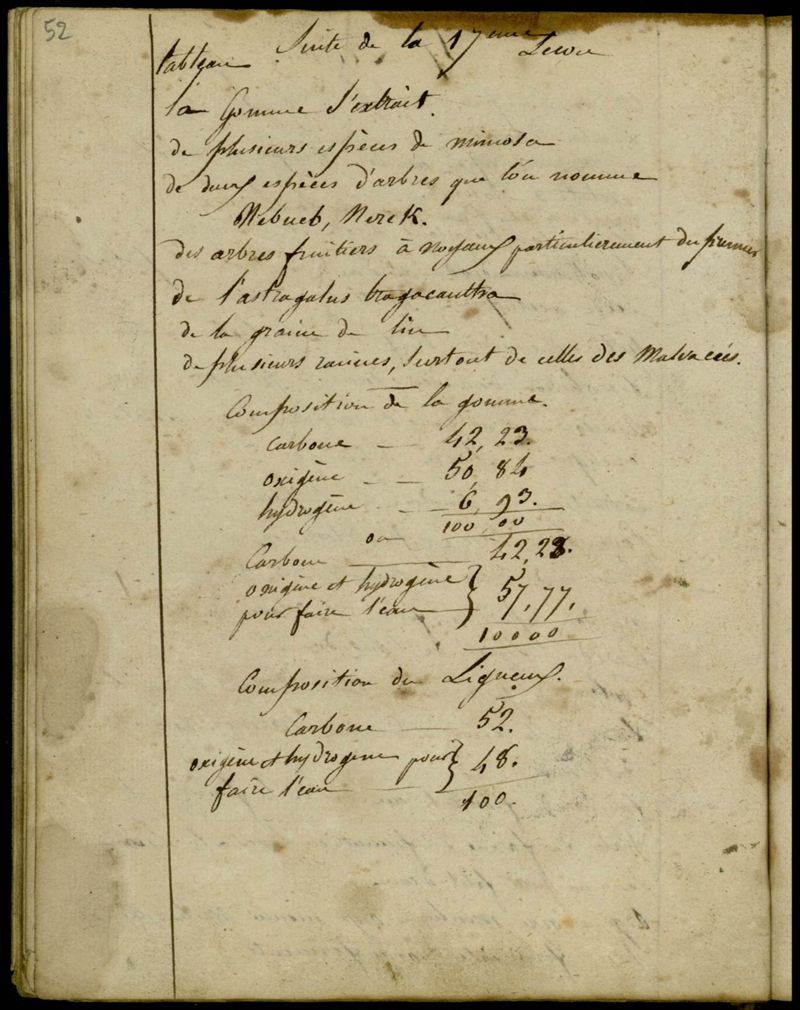 52
Suite de la 17eme Lecon
tableau
la Gomme S'extrait.
de plusieurs espèces de mimosa
de deux espèces d'arbres que l'on nomme
Nebueb, Nerek.
des arbres fruitiers à noyaux particulierement du prunier
de l'astragalus tragacantha
de la graine de lin
de plusieurs racines, surtout de celles des Malvacées.
Composition de la gomme.
Carbone — 42,23.
oxigène — — 50,84
hydrogène — 6,93.
100,00
ou
Carbone — 42,23.
oxigène et hydrogène } 57,77.
pour faire l'eau —
10000
Composition du Ligneux.
Carbone — 52.
oxigène et hydrogene pour } 48.
faire l'eau —
100.